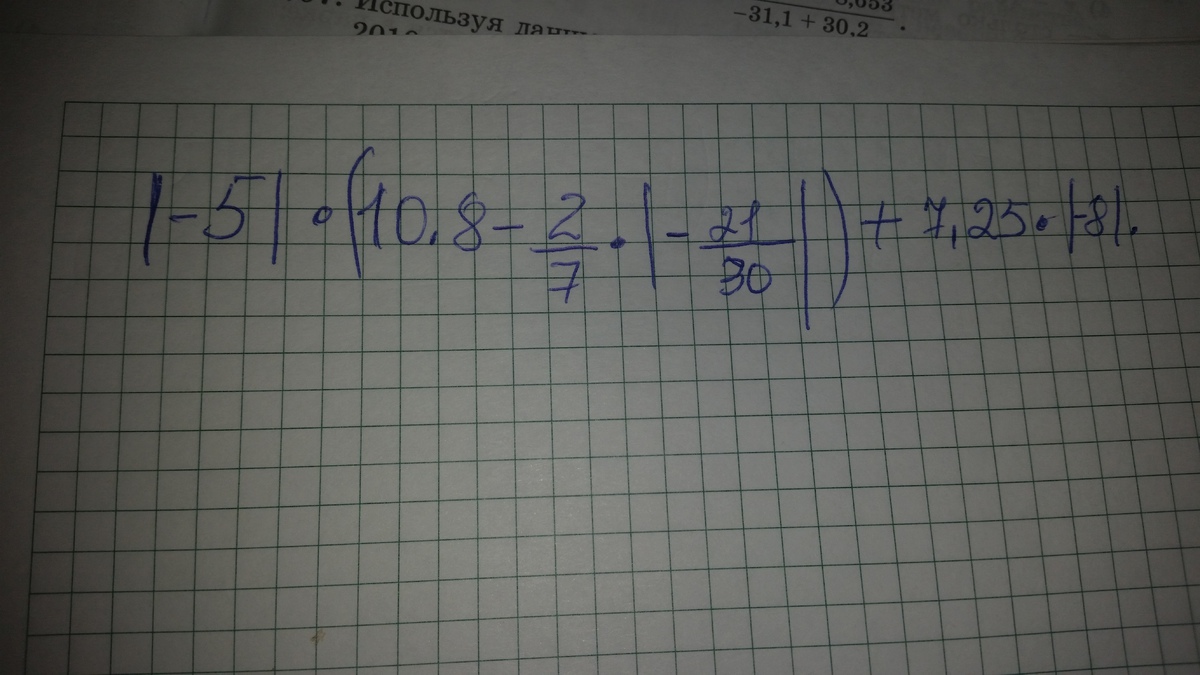 Используя
8,653
−31,1 + 30,2 .
|−5| · (10.8 − 2/7 · |−21/30|) + 7,25 · |−8|.